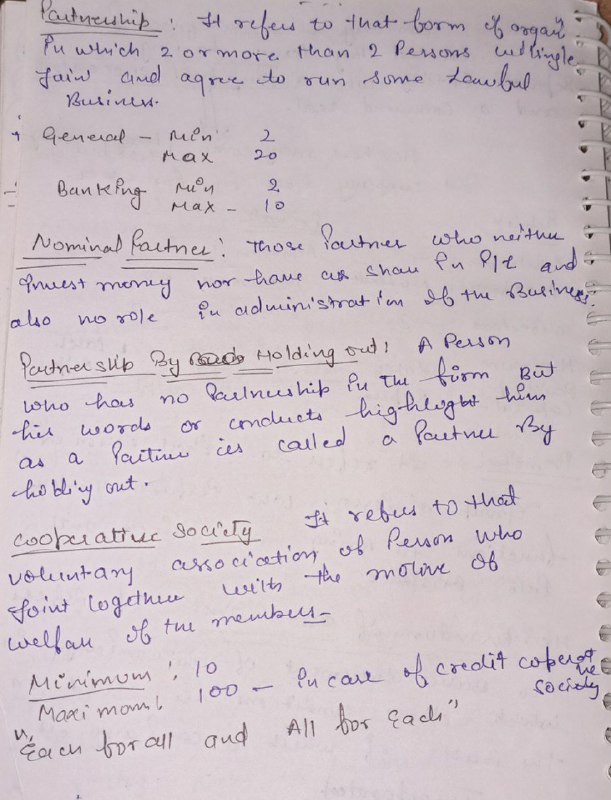 Partnership : It refers to that form of organ
in which 2 or more than 2 Persons willingle
Join and agree to run some Lawful
Business.
General - Min 2
Max 20
Banking Min 2
Max - 10
Nominal Partner : Those Partner who neither
invest money nor have as share in P/L and
also no role in administration of the Business.
Partnership By Holding out : A Person
who has no Partnership in the firm But
his words or conducts highlight him
as a Partner is called a Partner By
holding out.
Cooperative Society It refers to that
voluntary association of Person who
Joint together with the motive of
welfare of the members
Minimum : 10
Maximom : 100 - In case of credit coperative
society
"Each for all and All for Each"